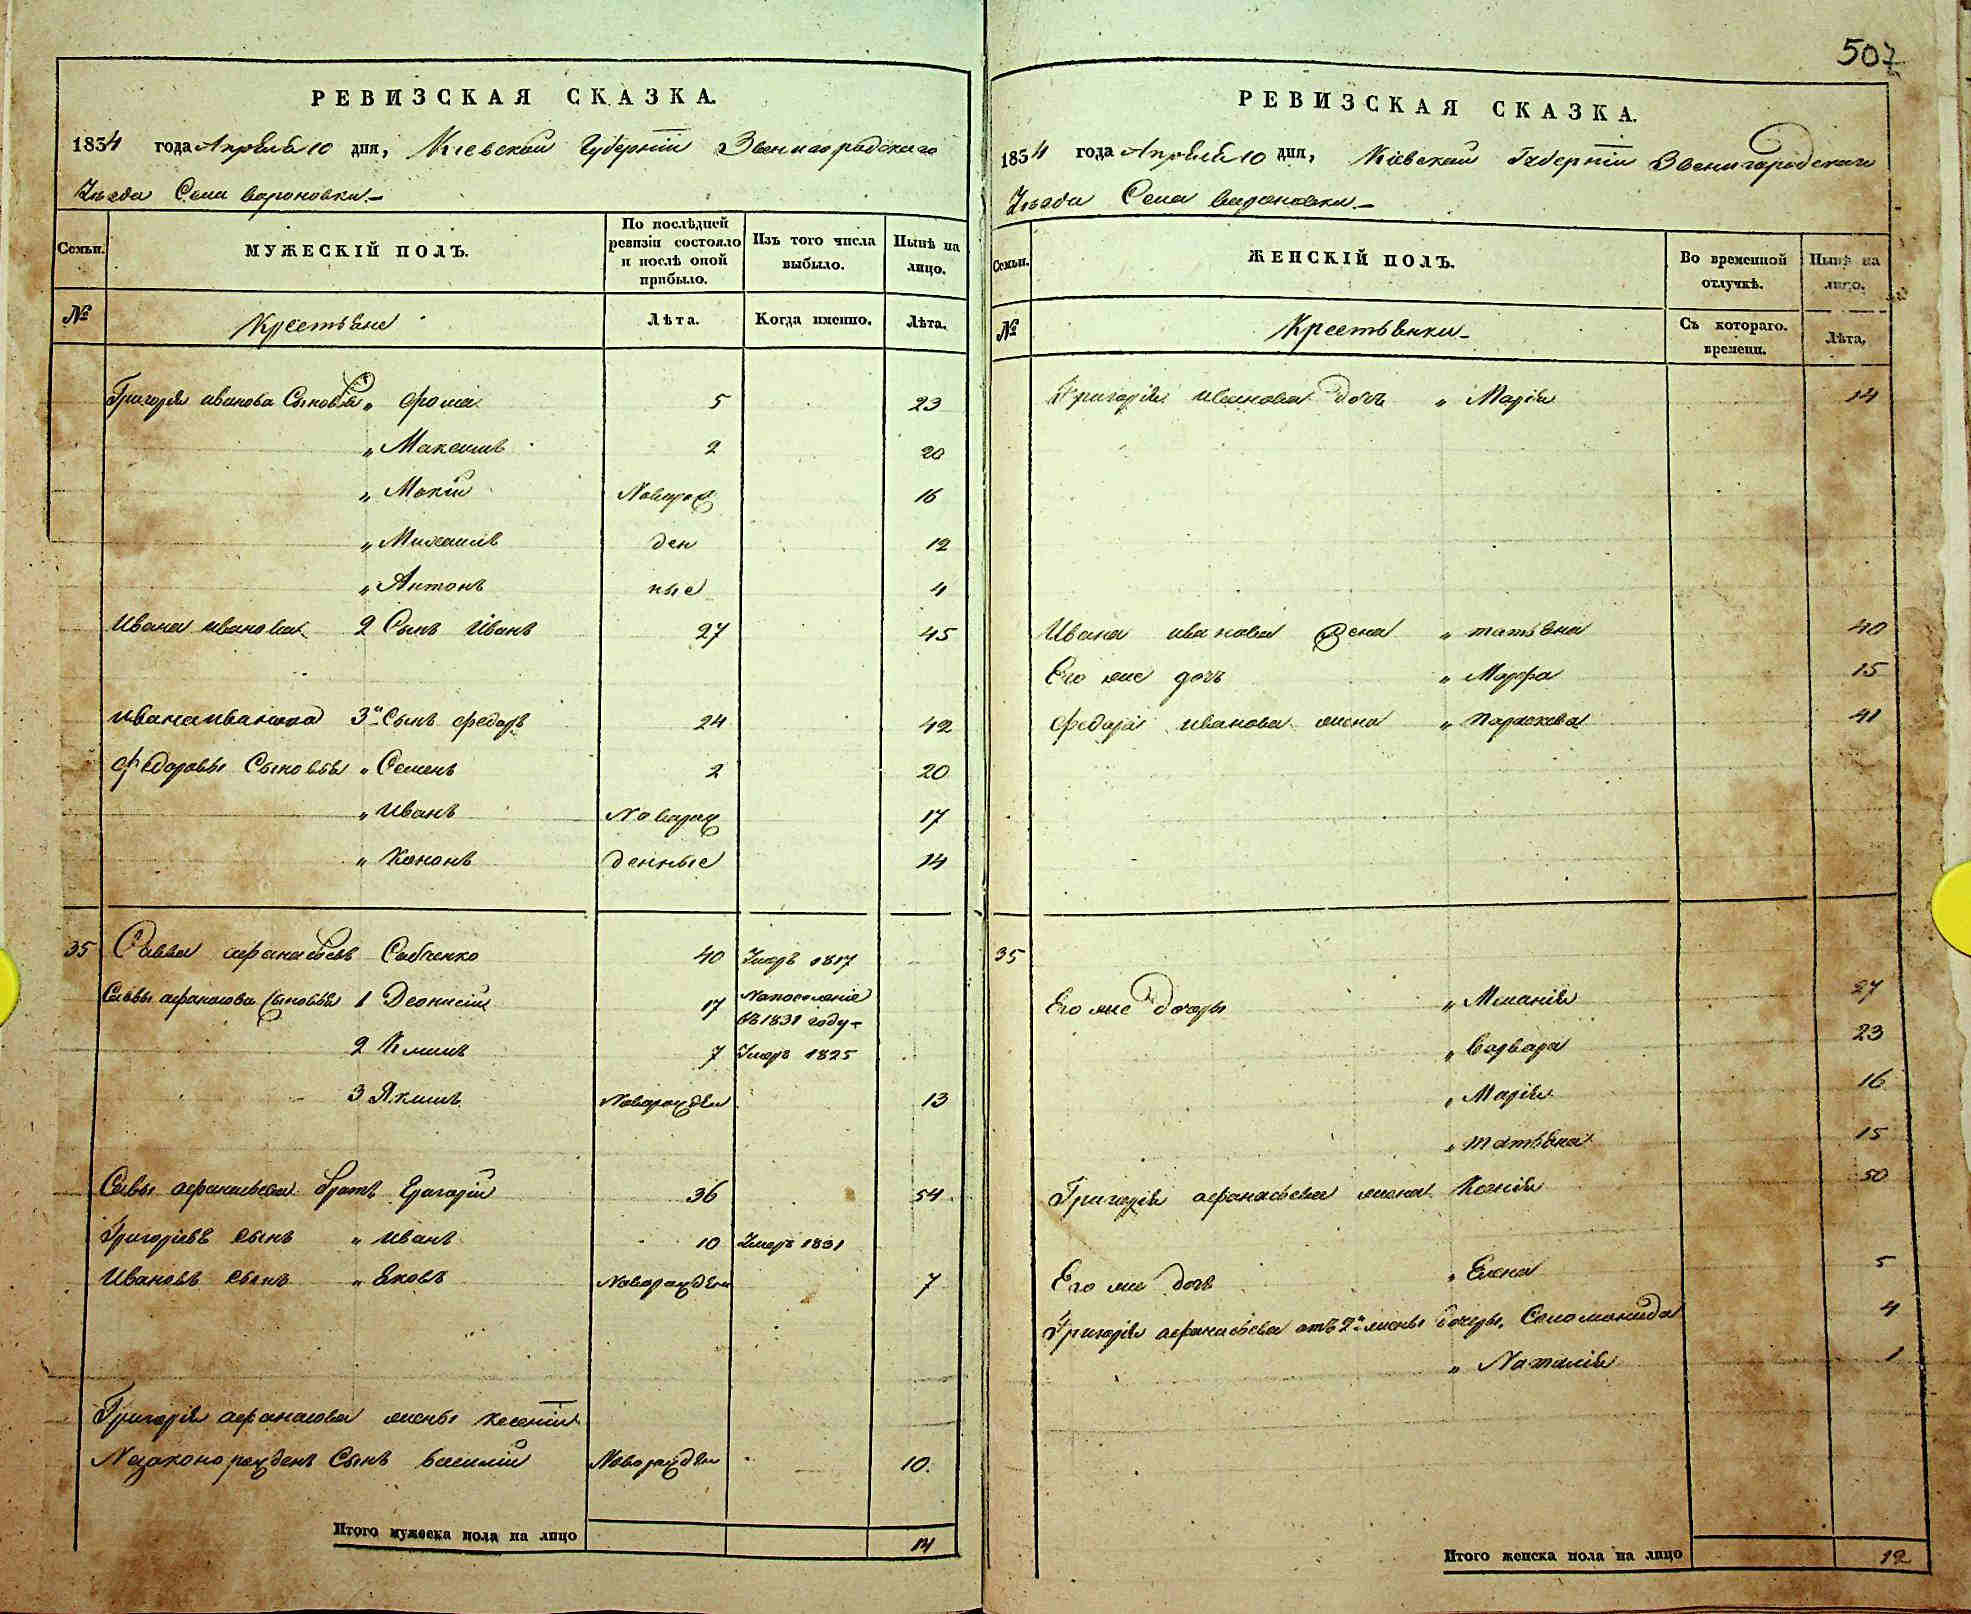 507
РЕВИЗСКАЯ СКАЗКА.
1854 года Апреля 10 дня, Киевской Губернии Звенигородскаго
Уезда Села Вороновки
Семьи. МУЖЕСКІЙ ПОЛЪ. По послѣдней ревизіи состояло и послѣ оной прибыло. Изъ того числа выбыло. Нынѣ на лицо.
№ Крестьяне Лѣта. Когда именно. Лѣта.
Григорія Иванова Сыновья " Фома 5 23
" Максимъ 2 20
" Мокій Новорож 16
" Михаилъ ден 12
" Антонъ ные 4
Ивана Иванова 2 Сынъ Иванъ 27 45
Ивана Иванова 3й Сынъ Федоръ 24 42
Федоровы Сыновья " Семенъ 2 20
" Иванъ Новорож 17
" Кононъ денные 14
35 Савва Афанасьевъ Савченко 40 Умеръ 1817
Саввы Афанасова Сыновья 1 Деонисій 17 На поселеніе
въ 1831 году
2 Климъ 7 Умеръ 1825
3 Якимъ Новорожден 13
Савы Афанасьева братъ Григорій 36 54
Григорьевъ сынъ " Иванъ 10 Умеръ 1831
Ивановъ сынъ " Яковъ Новорожден 7
Григорія Афанасова жены Ксеніи
Незаконорожденъ Сынъ Василій Новорожден 10.
Итого мужеска пола на лицо 14
РЕВИЗСКАЯ СКАЗКА.
1854 года Апреля 10 дня, Кіевской Губерніи Звенигородскаго
Уезда Села Вороновки
Семьи. ЖЕНСКІЙ ПОЛЪ. Во временной отлучкѣ. Нынѣ на лицо.
№ Крестьянки Съ котораго времени. Лѣта.
Григорія Иванова дочь " Марія 14
Ивана Иванова жена " Татьяна 40
Его же дочь " Марфа 15
Федора Иванова жена " Параскева 41
35
Его же дочеры " Меланія 27
" Варвара 23
" Марія 16
" Татьяна 15
Григорія Афанасьева жена Ксенія 50
Его же дочь " Елена 5
Григорія Афанасьева отъ 2й жены дочеры, Соломонида 4
" Наталія 1
Итого женска пола на лицо 12